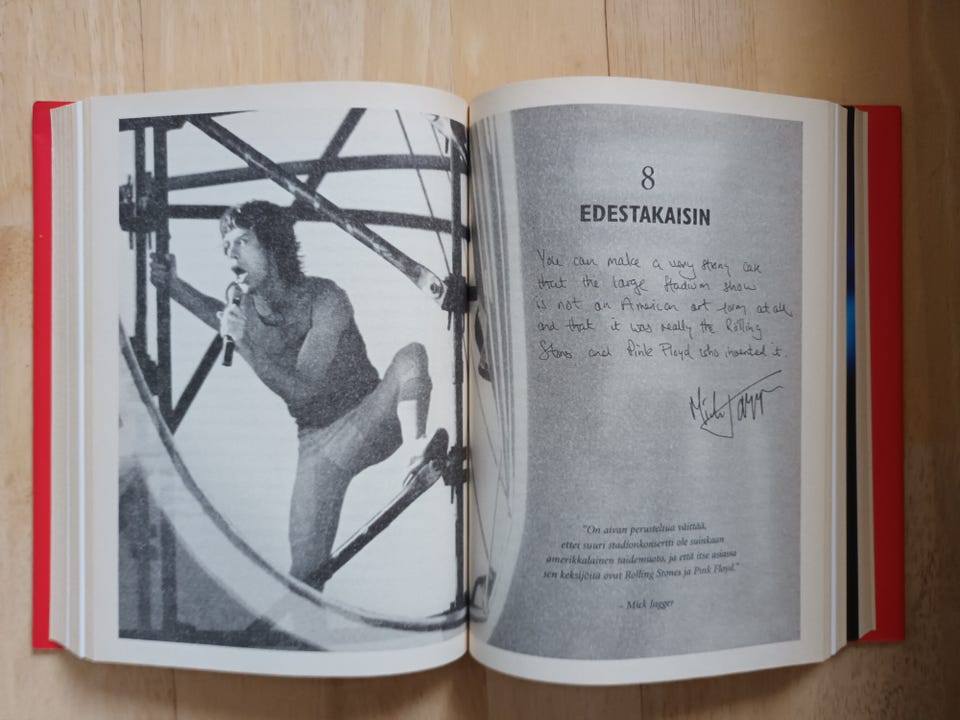 8
EDESTAKAISIN
You can make a very strong case
that the large stadium show
is not an American art form at all
and that it was really the Rolling
Stones and Pink Floyd who invented it.
Mick Jagger
"On aivan perusteltua väittää,
ettei suuri stadionkonsertti ole suinkaan
amerikkalainen taidemuoto, ja että itse asiassa
sen keksijöitä ovat Rolling Stones ja Pink Floyd."
– Mick Jagger